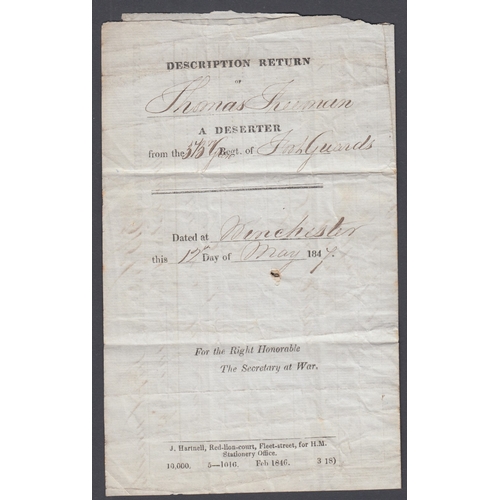 DESCRIPTION RETURN
OF
Thomas Freeman
A DESERTER
from the Regt. of Foot Guards
Dated at Winchester
this 12th Day of May 1847.
For the Right Honorable
The Secretary at War.
J. Hartnell, Red-lion-court, Fleet-street, for H.M.
Stationery Office.
10,000. 5—1016. Feb 1846. 3 18)